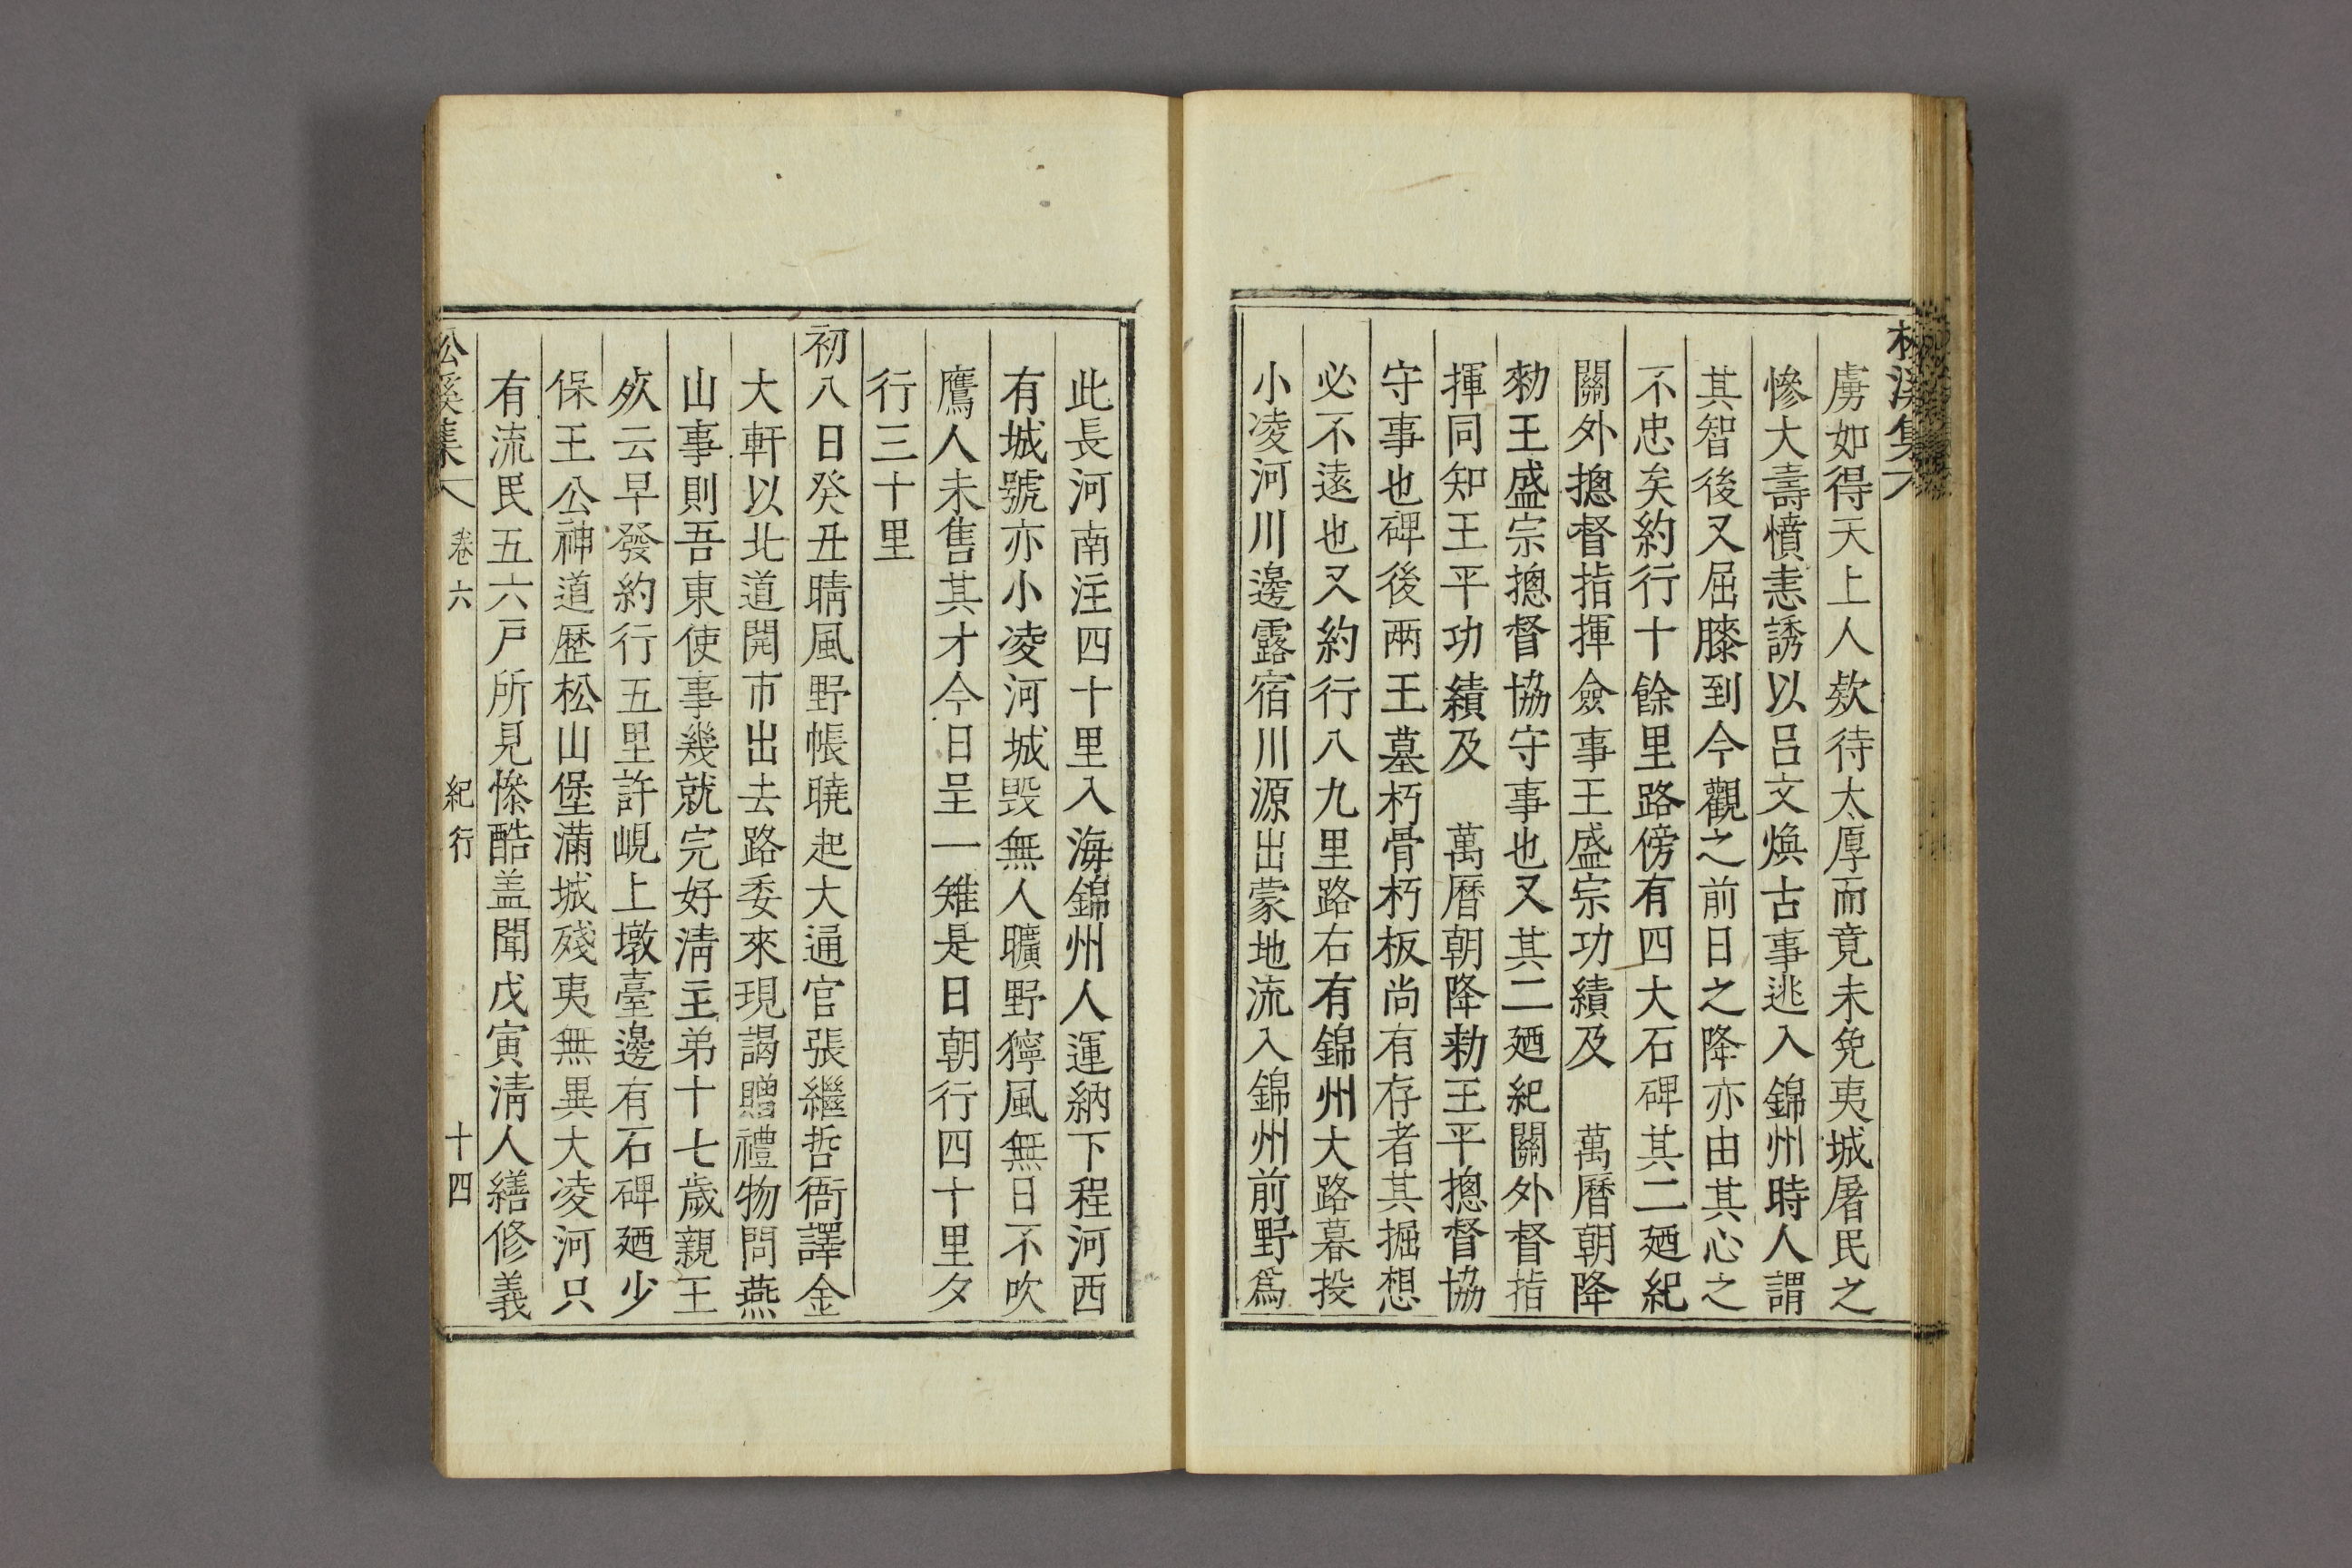 虜如得天上人欵待太厚而竟未免夷城屠民之
慘大壽憤恚誘以呂文煥古事逃入錦州時人謂
其智後又屈膝到今觀之前日之降亦由其心之
不忠矣約行十餘里路傍有四大石碑其二廼紀
關外摠督指揮僉事王盛宗功績及 萬曆朝降
勑王盛宗摠督協守事也又其二廼紀關外督指
揮同知王平功績及 萬曆朝降勑王平摠督協
守事也碑後兩王墓朽骨朽板尚有存者其掘想
必不遠也又約行八九里路右有錦州大路暮投
小凌河川邊露宿川源出蒙地流入錦州前野爲
此長河南注四十里入海錦州人運納下程河西
有城號亦小凌河城毁無人曠野獰風無日不吹
鷹人未售其才今日呈一雉是日朝行四十里夕
行三十里
初八日癸丑晴風野帳曉起大通官張繼哲衙譯金
大軒以北道開市出去路委來現謁贈禮物問燕
山事則吾東使事幾就完好淸主弟十七歲親王
㱡云早發約行五里許峴上墩臺邊有石碑廼少
保王公神道歷松山堡滿城殘夷無異大凌河只
有流民五六戶所見慘酷盖聞戊寅淸人繕修義
松溪集 卷六 紀行 十四